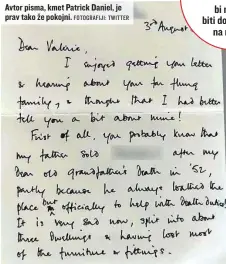 Avtor pisma, kmet Patrick Daniel, je
prav tako že pokojni. FOTOGRAFIJI: TWITTER
bi n
biti do
na
3rd August
Dear Valerie,
I enjoyed getting your letter
& hearing about your far flung
family, & thought that I had better
tell you a bit about mine!
First of all, you probably know that
my father sold after my
dear old grandfather's death in '52,
partly because he always loathed the
place but officially to help with Death duties!
It is very sad now, split into about
three dwellings & having lost most
of the furniture & fittings.